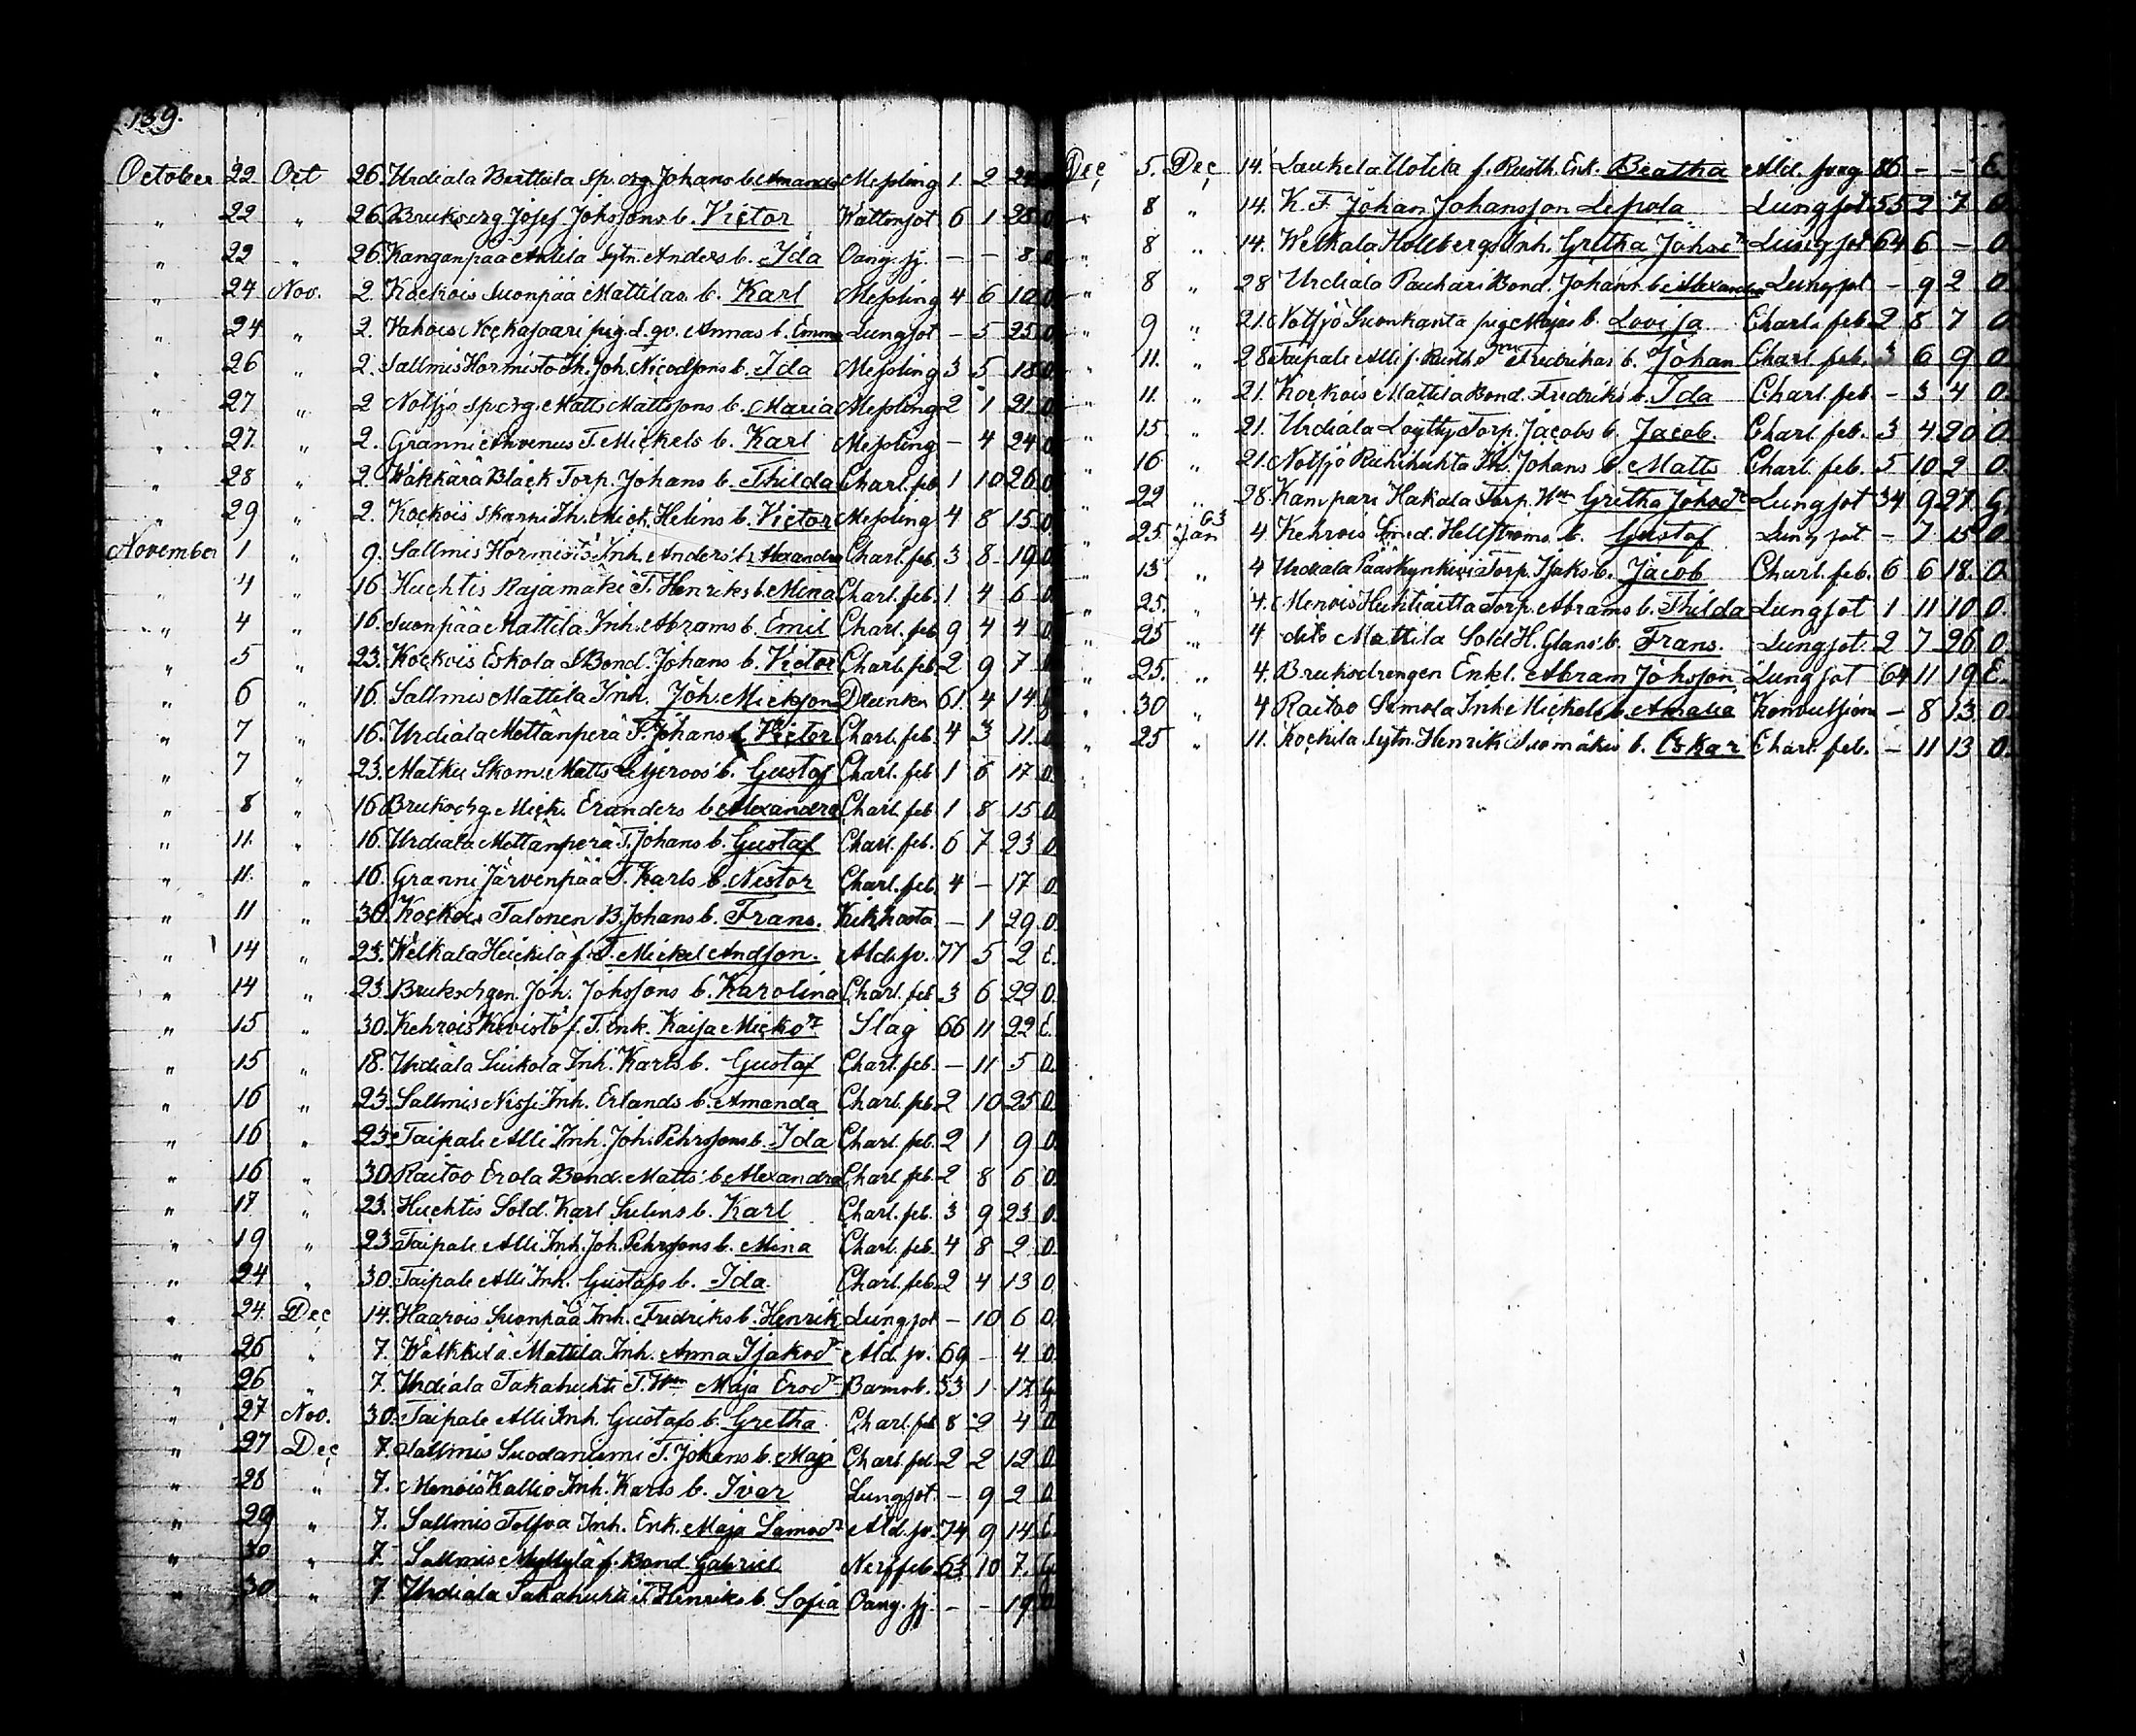 139.
October 22 Oct 26. Urdiala Berttula sp. drg. Johans b. Amanda Messling 1 2 24
" 22 " 26. Bruksdrg Josef Johssons b. Victor Wattensot 6 1 28 O.
" 22 " 26. Kanganpää Anttila Sytn. Anders b. Ida Oang. sj. - - 8 O.
" 24 Nov. 2. Kockois Suonpää Mattilas b. Karl Messling 4 6 10 O.
" 24 " 2. Vahois Nockajaari pig. L. qv. Annas b. Emma Lungsot - 5 25 O.
" 26 " 2. Sallmis Hormisto Ih. Joh. Nicodssons b. Ida Messling 3 5 18 O.
" 27 " 2 Notsjö sp. drg. Matts Mattssons b. Maria Messling 2 1 21 O.
" 27. " 2. Granni Ahvenus T. Mickels b. Karl Messling - 4 24 O.
" 28 " 2. Wäkkärä Bläck Torp. Johans b. Thilda Charl. feb. 1 10 26 O.
" 29 " 2. Kockois Skarpi Ih. Mick. Helins b. Victor Messling 4 8 15 O.
November 1 " 9. Sallmis Hormisto Inh. Anders b. Alexandra Charl. feb. 3 8 19 O.
" 4 " 16 Huchtis Rajamäki T. Henriks b. Mina Charl. feb. 1 4 6 O.
" 4 " 16. Suonpää Mattila Inh. Abrams b. Emil Charl. feb. 9 4 4 O.
" 5 " 23. Kockois Eskola S Bond. Johans b. Victor Charl. feb. 2 9 7
" 6 " 16. Sallmis Mattila Inh. Joh. Micksson Drunkn 61. 4 14 G
" 7 " 16. Urdiala Mettänperä T. Johans b. Victor Charl. feb. 4 3 11. O.
" 7 " 23. Matku Skom. Matts Liljeroos b. Gustaf Charl. feb 1 6 17 O.
" 8 " 16 Bruksdrg. Mick. Eranders b. Alexandra Charl. feb 1 8 15 O.
" 11. " 16. Urdiala Mettänperä T. Johans b. Gustaf Charl. feb. 6 7 23 O.
" 11. " 16. Granni Järvenpää T. Karls b. Nestor Charl. feb. 4 - 17 O.
" 11 " 30. Kockois Talonen B. Johans b. Frans. Kikhosta - 1 29 O.
" 14 " 23. Welkala Heickilä f. T. Mickel Andsson. Ald. sv. 77 5 2 E.
" 14 " 23. Bruksdrgen. Joh. Johssons b. Karolina Charl. feb 3 6 22 O.
" 15 " 30. Kehrois Kivistö f. T. Enk. Kaisa Micksdr Slag 66 11 22 E.
" 15 " 18. Urdiala Siukola Inh. Karls b. Gustaf Charl. feb. - 11 5 O.
" 16 " 23. Sallmis Nissi Inh. Erlands b. Amanda Charl. feb. 2 10 25 O.
" 16 " 23. Taipale Alli Inh. Joh. Pehrssons b. Ida Charl. feb. 2 1 9 O.
" 16 " 30 Raitoo Erola Bond. Matts b. Alexandra Charl. feb. 2 8 6 O.
" 17 " 23. Huchtis Sold. Karl Sulins b. Karl Charl. feb. 3 9 23 O.
" 19 " 23 Taipale Alli Inh. Joh. Pehrssons b. Mina Charl. feb. 4 8 2 O.
" 24 " 30. Taipale Alli Inh. Gustafs b. Ida Charl. feb. 2 4 13 O.
" 24 Dec 14. Haarois Suonpää Inh. Fredriks b. Henrik Lungsot - 10 6 O.
" 26 " 7. Wälkkilä Mattila Inh. Anna Isaksdr Ald. sv. 69 - 4 O.
" 26 " " 7. Urdiala Takahuhti T. Hru Maja Ersdr Barnsb. 33 1 17 G
" 27 Nov. 30. Taipale Alli Inh. Gustafs b. Gretha Charl. feb 8 2 4 O
" 27 Dec 7. Sallmis Suodaniemi T. Johans b. Maja Charl. feb. 2 2 12 O
" 28 " 7. Menois Kallio Inh. Karls b. Ivar Lungsot. - 9 2 O
" 29 " 7. Sallmis Tolfva Inh. Enk. Maja Samsdr Ald. sv. 74 9 14 E.
" 30 " 7. Sallmis Myllylä f. Bond Gabriel Nerffeb. 63 10 7. G
" 30 " 7. Urdiala Takahuhti T. Henriks b. Sofia Oang. sj. - - 19 O
Dec 5. Dec 14. Laukela Uotila f. Rusth. Enk. Beatha Ald. svag. 86 - - E.
" 8 " 14. K. F. Johan Johansson Lepola Lungsot 55 2 7 O.
" 8 " 14. Welkala Hollbergs Inh. Gretha Johsdr Lungsot 64 6 - O.
" 8 " 28 Urdiala Pauhari Bond. Johans b. Alexandra Lungsot - 9 2 O.
" 9 " 21. Notsjö Suonkanta pig Majas b. Lovisa Charl. feb. 2 8 7 O.
" 11. " 28 Taipale Alli f. Rusth. Fredrikas b. Johan Charl. feb. 3 6 9 O.
" 11. " 21. Kockois Mattila Bond. Fredriks b. Ida Charl. feb - 3 4 O.
" 15 " 21. Urdiala Löytty Torp. Jacobs b. Jacob. Charl. feb. 3 4 20 O.
" 16 " 21. Notsjö Riihihuhta Ih. Johans b. Matts Charl. feb. 5 10 2 O.
" 22 " 28. Kampari Hakala Torp. Hru Gretha Johsdr Lungsot 34 9 27. G.
" 25. Jan 63 4 Kehrois Smed. Hellströms b. Gustaf Lungsot - 7 15 O.
" 13. " 4 Urdiala Pääskynkivi Torp. Isaks b. Jacob Charl. feb. 6 6 18. O.
" 25. " 4. Menois Huhtiaitta Torp. Abrams b. Thilda Lungsot 1 11 10 O.
" 25 " 4 dito Mattila Sold H. Glans b. Frans. Lungsot. 2 7 26 O.
" 25. " 4. Bruksdrengen Enkl. Abram Johsson Lungsot 64 11 19 E.
" 30 " 4 Raitoo Simola Inh Mickels b. Amalia Konvulsion - 8 13. O.
" 25 " 11. Kockila Sytn. Henrik Suomäkis b. Oskar Charl. feb. - 11 13 O.